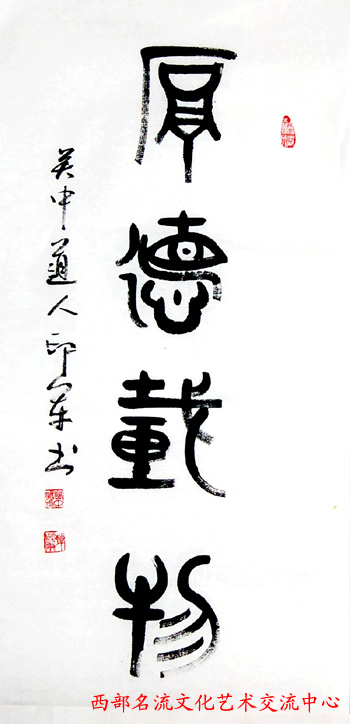 厚德載物
吴中道人书
西部名流文化艺术交流中心